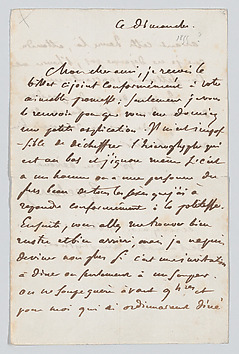 Ce dimanche.
Mon cher ami, je reçois le
billet ci joint conformément à votre
aimable promesse. Seulement je vous
le renvoie pour que vous me donniez
une petite explication. Il m'est impos-
sible de déchiffrer l'hiéroglyphe qui
est au bas et j'ignore même si c'est
à un homme ou à une personne du
plus beau de tous les sexes que j'ai à
répondre conformément à la politesse.
Ensuite, vous allez me trouver bien
rustre et bien arriéré, mais je n'ai pu
deviner non plus si c'est une invitation
à dîner ou seulement à un souper.
On ne soupe guère avant 9 hres et
pour moi qui ai ordinairement dîné